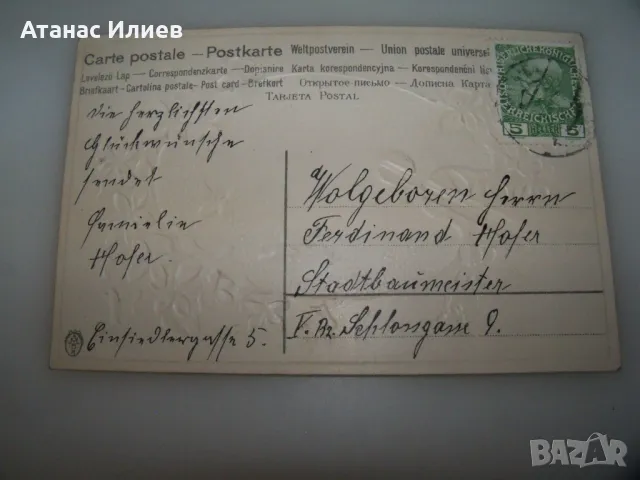 Атанас Илиев
Carte postale — Postkarte Weltpostverein — Union postale universel
Levelező-Lap — Correspondenzkarte — Dopisnice Karta korespondencyjna — Korespondenční
Briefkaart - Cartolina postale - Post card - Brefkort — Открытое письмо — Дописна Карта
Tarjeta Postal
5 5
die herzlichsten
Glückwünsche
sendet
Familie
Hofer.
Einsiedlergasse 5.
Wolgeboren Herrn
Ferdinand Hofer
Stadtbaumeister
V. Bz. Schlossgasse 9.
BAZAR
bg